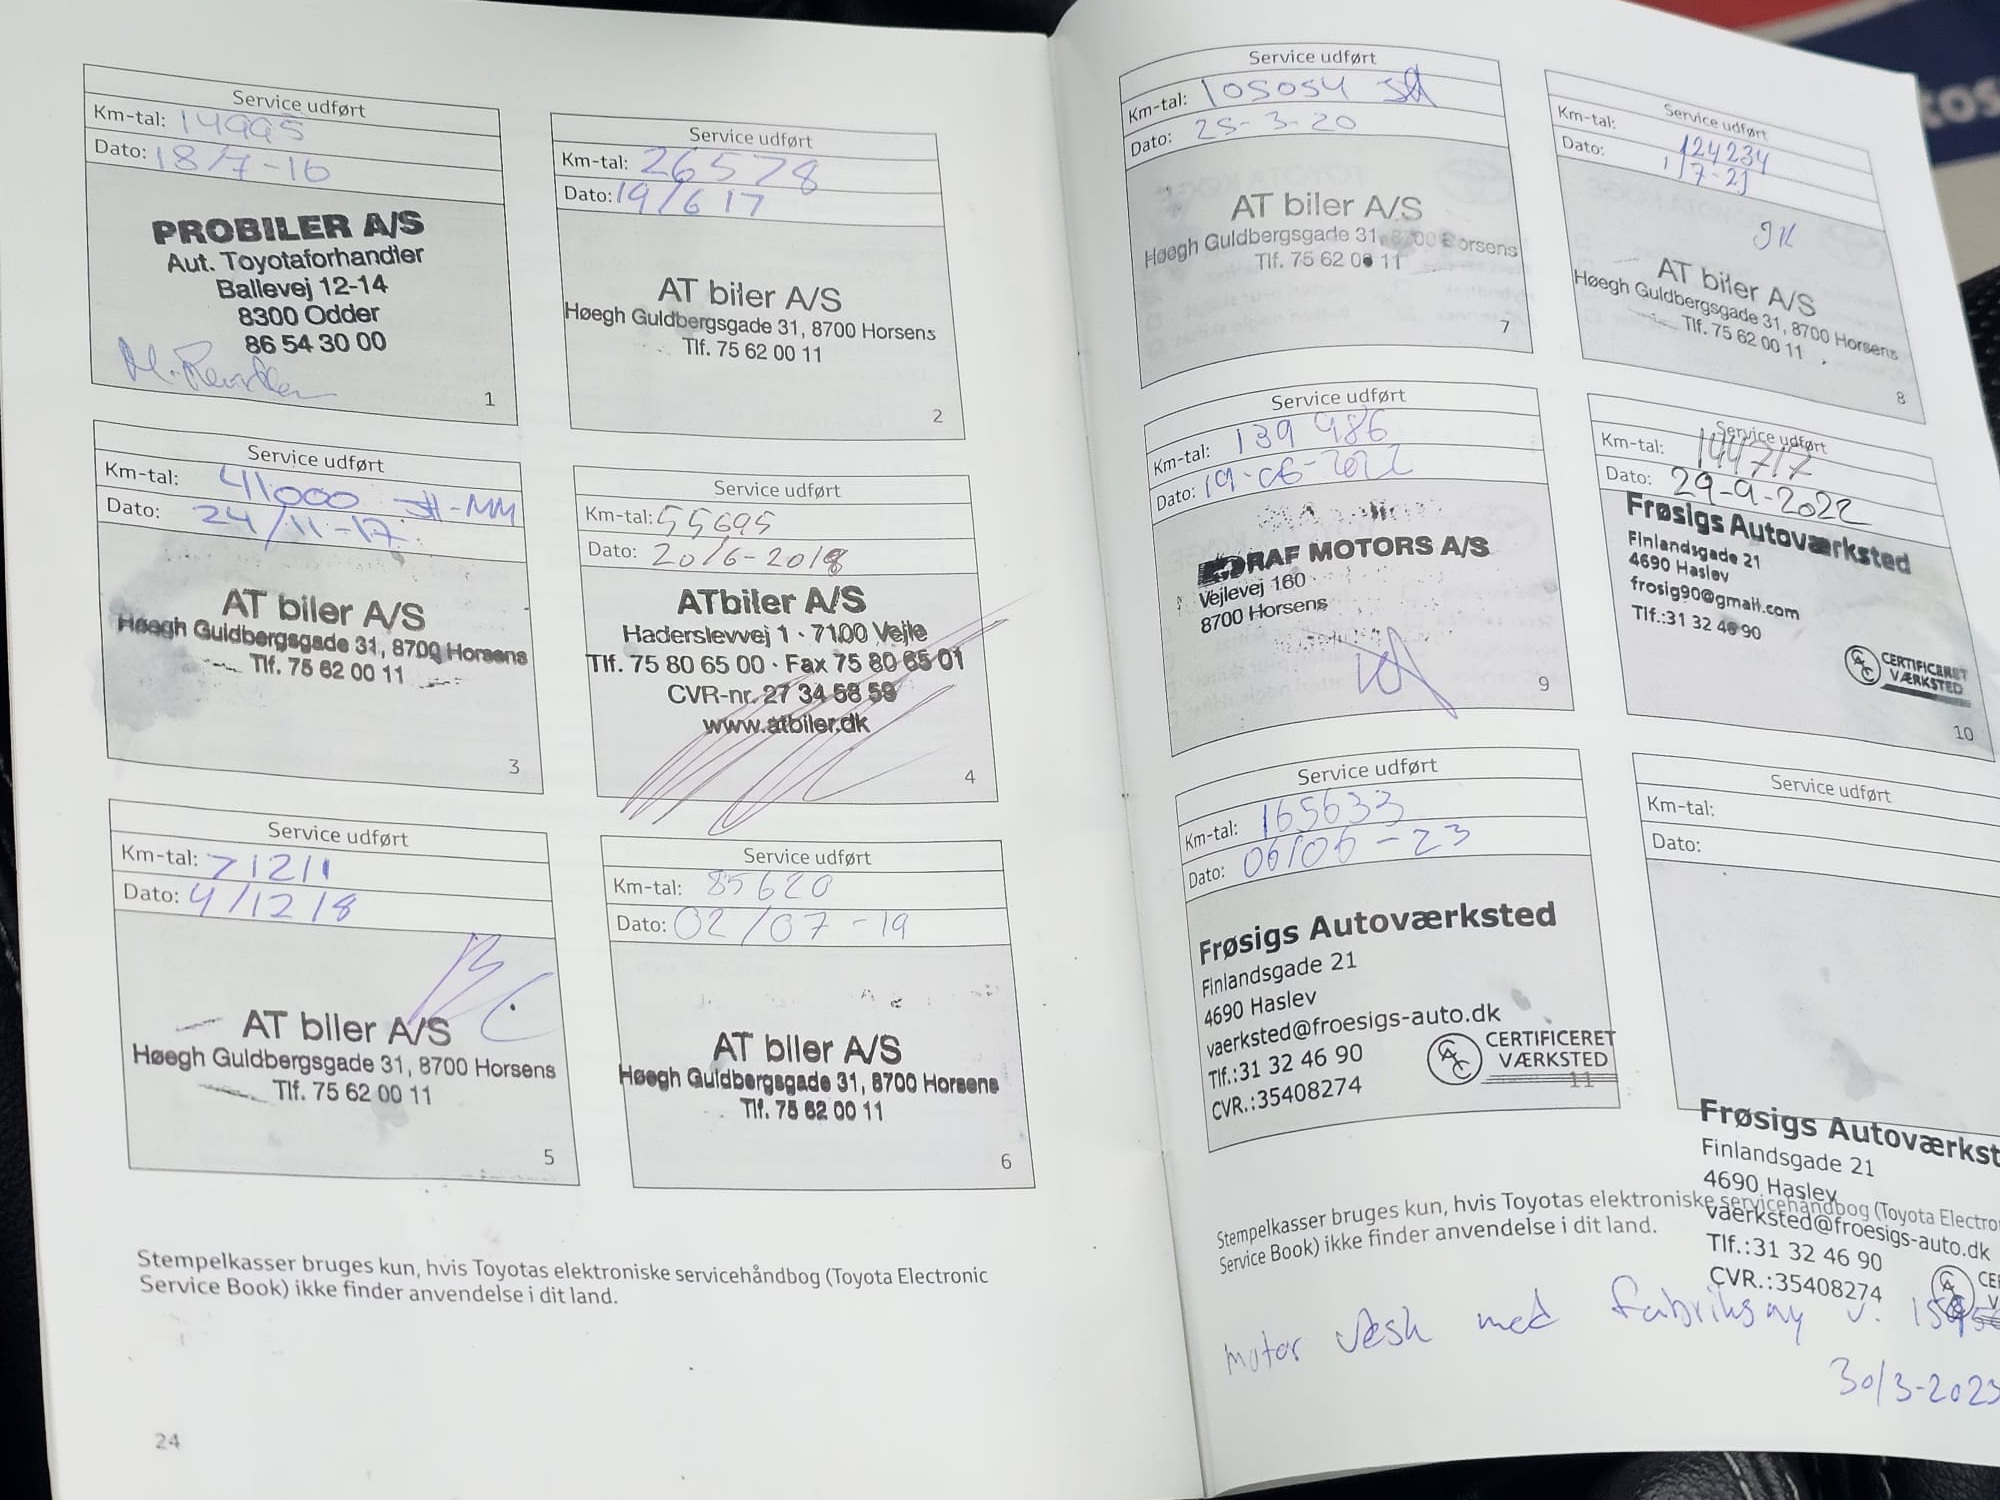 Service udført
Km-tal: 14995
Dato: 18/7-16
PROBILER A/S
Aut. Toyotaforhandler
Ballevej 12-14
8300 Odder
86 54 30 00
1
Service udført
Km-tal: 26578
Dato: 19/6 17
AT biler A/S
Høegh Guldbergsgade 31, 8700 Horsens
Tlf. 75 62 00 11
2
Service udført
Km-tal: 41000 JH-MM
Dato: 24/11-17
AT biler A/S
Høegh Guldbergsgade 31, 8700 Horsens
Tlf. 75 62 00 11
3
Service udført
Km-tal: 55695
Dato: 20/6-2018
ATbiler A/S
Haderslevvej 1 · 7100 Vejle
Tlf. 75 80 65 00 · Fax 75 80 65 01
CVR-nr. 27 34 58 59
www.atbiler.dk
4
Service udført
Km-tal: 71211
Dato: 4/12 18
AT biler A/S
Høegh Guldbergsgade 31, 8700 Horsens
Tlf. 75 62 00 11
5
Service udført
Km-tal: 85620
Dato: 02/07-19
AT biler A/S
Høegh Guldbergsgade 31, 8700 Horsens
Tlf. 75 62 00 11
6
Stempelkasser bruges kun, hvis Toyotas elektroniske servicehåndbog (Toyota Electronic
Service Book) ikke finder anvendelse i dit land.
24
Service udført
Km-tal: 105054
Dato: 25-3-20
AT biler A/S
Høegh Guldbergsgade 31, 8700 Horsens
Tlf. 75 62 00 11
7
Service udført
Km-tal: 124234
Dato: 1/7-21
AT biler A/S
Høegh Guldbergsgade 31, 8700 Horsens
Tlf. 75 62 00 11
8
Service udført
Km-tal: 139 986
Dato: 19-06-2022
RAF MOTORS A/S
Vejlevej 160
8700 Horsens
9
Service udført
Km-tal: 144717
Dato: 29-9-2022
Frøsigs Autoværksted
Finlandsgade 21
4690 Haslev
frosig90@gmail.com
Tlf.:31 32 46 90
CERTIFICERET
VÆRKSTED
10
Service udført
Km-tal: 165633
Dato: 06/06-23
Frøsigs Autoværksted
Finlandsgade 21
4690 Haslev
vaerksted@froesigs-auto.dk
Tlf.:31 32 46 90
CVR.:35408274
CERTIFICERET
VÆRKSTED
11
Service udført
Km-tal:
Dato:
Frøsigs Autoværkst
Finlandsgade 21
4690 Haslev
vaerksted@froesigs-auto.dk
Tlf.:31 32 46 90
CVR.:35408274
Stempelkasser bruges kun, hvis Toyotas elektroniske servicehåndbog (Toyota Electro
Service Book) ikke finder anvendelse i dit land.
motor væsk med fabriksny v.
30/3-2023